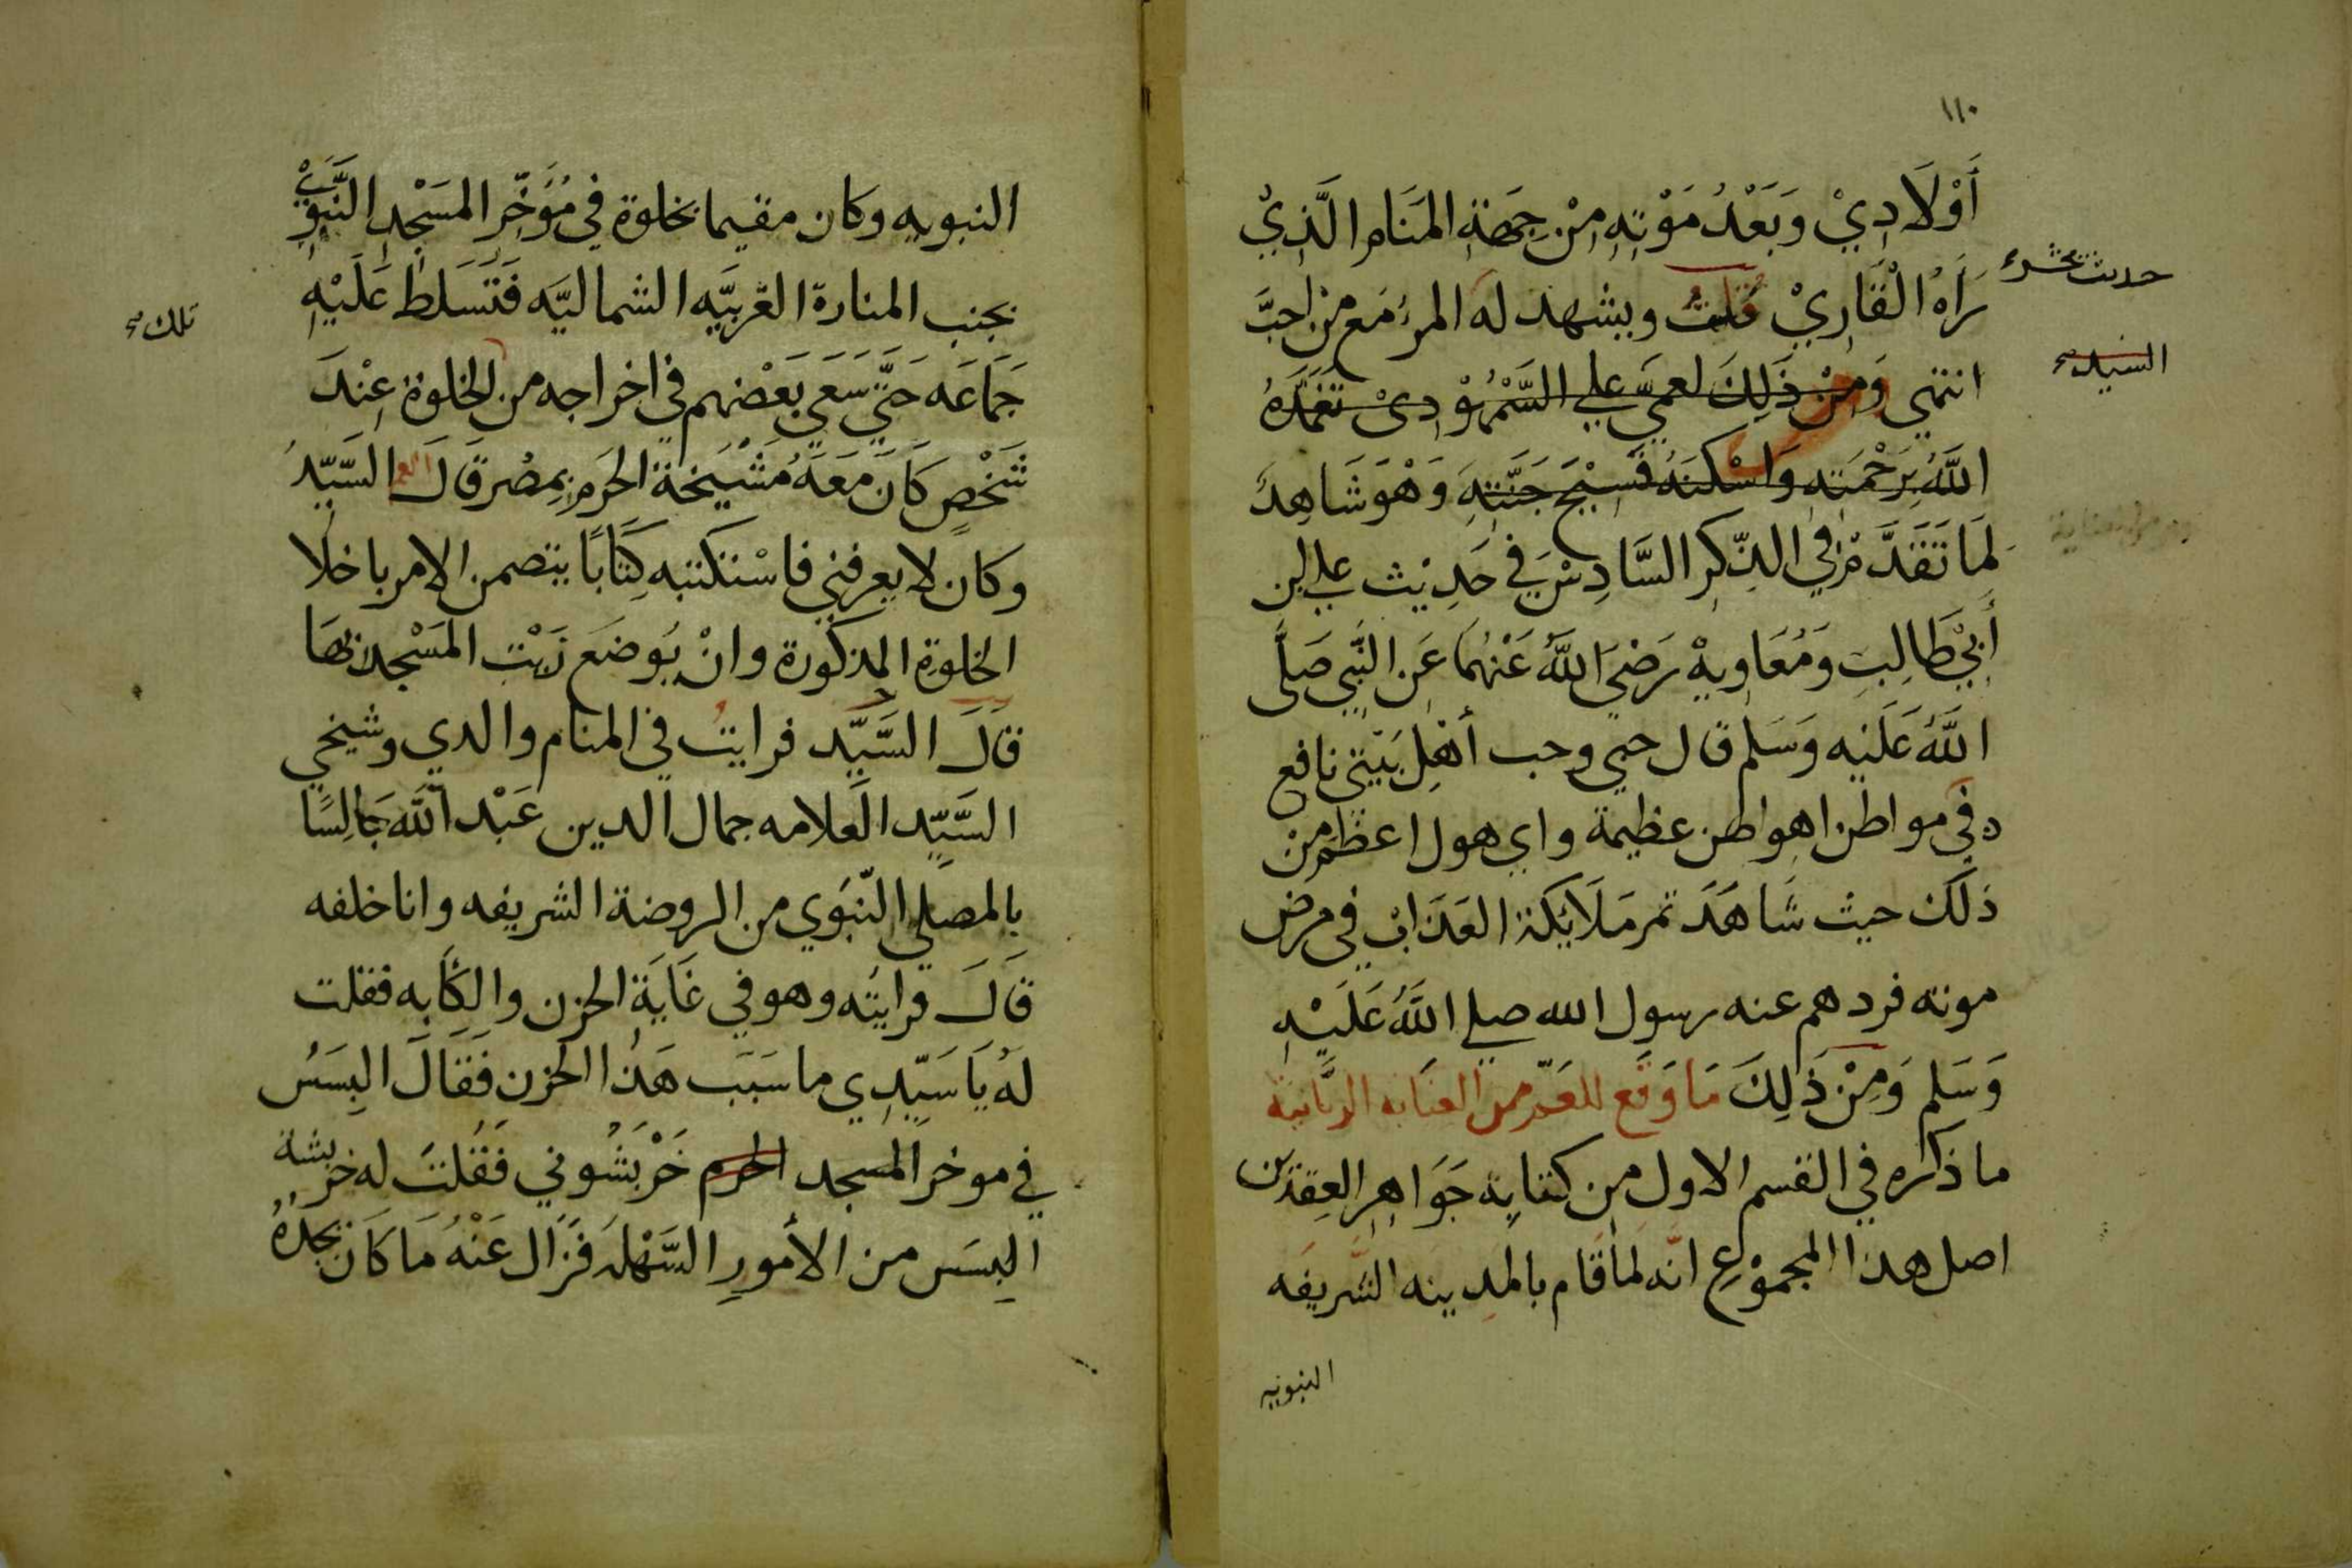 ١١٠
أَوْلَادِيْ وَبَعْدُ مَوْتِهِ مِنْ جِهَةِ المَنَامِ الَّذِيْ
رَاهُ الْقَارِيْ قلتُ ويشهد له المرءُ مَع من احبَّ
حديث
انتهى وَمِنْ ذَلِكَ لعمي علي السَّمْهُوْدِىْ تغَمَّدَهُ
السيد
اللَّهُ بِرَحْمَتِهِ وَاسْكنَهُ فَسِيْحَ جَنَّتِهِ وَهْوَ شَاهِدٌ
لمَا تَقَدَّمَ في الذِّكرِ السَّادِسْ في حَدِيْث علي بن
أَبيْ طَالِبٍ وَمُعَاوِيهْ رَضيَ اللَّهُ عَنْهُمَا عَن النَّبِي صَلَّى
اللَّهُ عَلَيْه وَسَلم قال حبي وحب أهْلِ بَيْتي نافع
في مواطن اهواطن عظيمة واي هول اعظم مِنْ
ذلكَ حيث شَاهَدَ تمر مَلَائِكة العَذَابْ في مرض
موته فردهم عنه رسول الله صلى اللَّهُ عَلَيْهِ
وَسَلم وَمِنْ ذَلِكَ مَا وَقَع للعَمّ من العنايه الربَّانية
ما ذكره في القسم الاول من كتابه جَوَاهِر العِقدَين
اصل هذا المجمُوْع انَّه لمَا قَام بالمدينه الشَّريفَه
النبويه
النبويه وكان مقيما بخلوة في مُؤَخِّر المَسْجِدِ النَّبَوِيْ
بجنب المنارة الغَربيَّه الشماليَّه فَتَسَلطَ عَلَيْهِ
تلك
جَمَاعَه حَتَّى سَعَى بَعْضهم في اخراجه من الخلوة عِنْدَ
شَخْصٍ كَانَ مَعَهُ مَشْيَخة الحَرمِ بمِصْر قَالَ العم السَّيّدُ
وكان لا يعرفني فاسْتكتبه كِتَابًا يتضمن الامر باخلا
الخلوة المذكورة وانْ يُوضَعَ زَيْت المَسْجد بهَا
قَالَ السَّيّد فرايتُ في المنام والدي وشيخي
السَّيّد العَلامه جمال الدين عَبْد اللَّه جَالِسًا
بالمصلى النّبَوي من الروضة الشريفه وانا خلفه
قَالَ فرايتُه وهو في غَايَة الحزن والكَآبه فقلت
لهُ يَا سَيّدِي ما سَبَب هَذا الحزن فَقَالَ البِسَسُ
في موخر المسجد الحرم خَرْبَشُوني فَقُلتَ له خربشة
البِسَس من الأمورِ السَّهْله فَزَال عَنْهُ مَا كَانَ يجدهُ